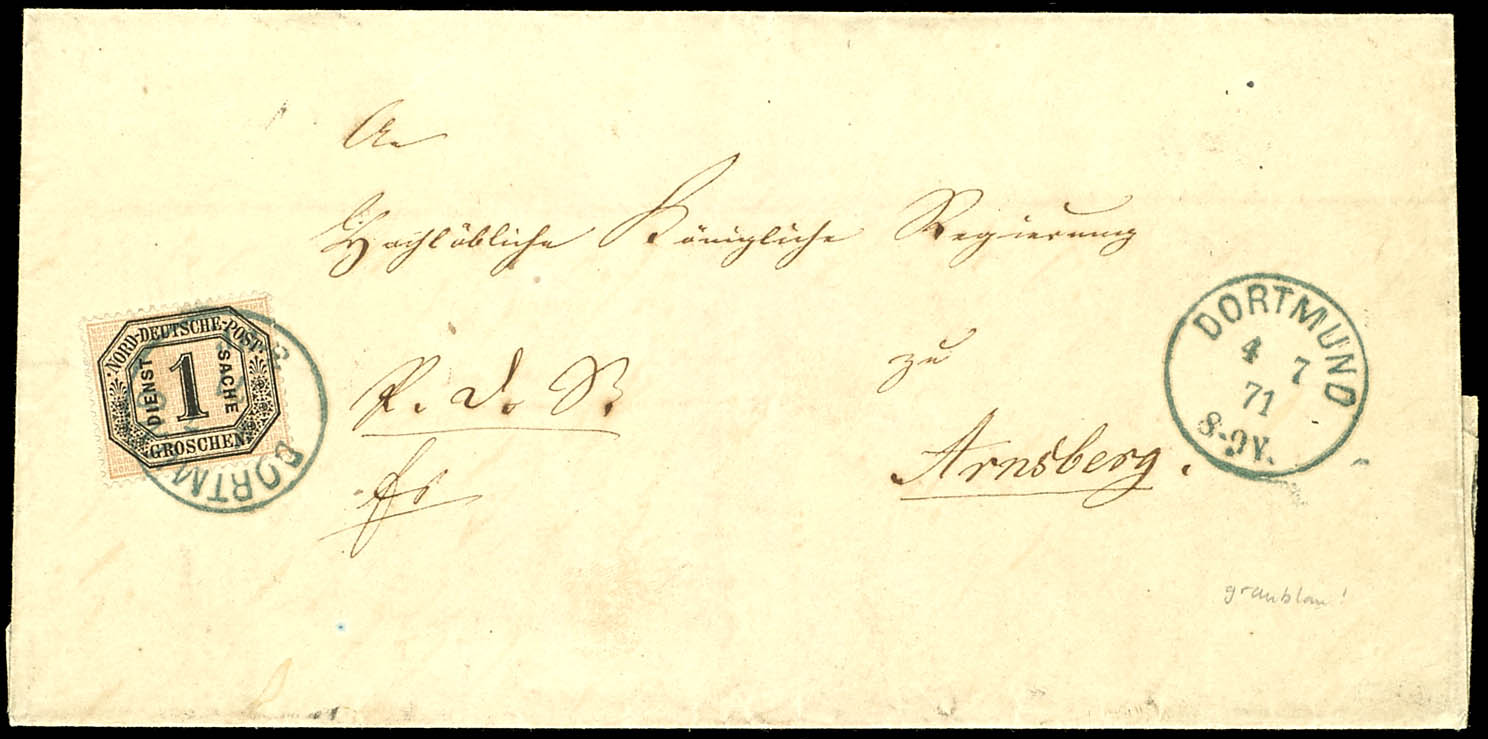 An
Hochlöbliche Königliche Regierung
zu
Arnsberg.
P. d. S.
fr
NORD-DEUTSCHE-POST
DIENST 1 SACHE
GROSCHEN
DORTM
DORTMUND
4 7
71
8-9V.
graublau!